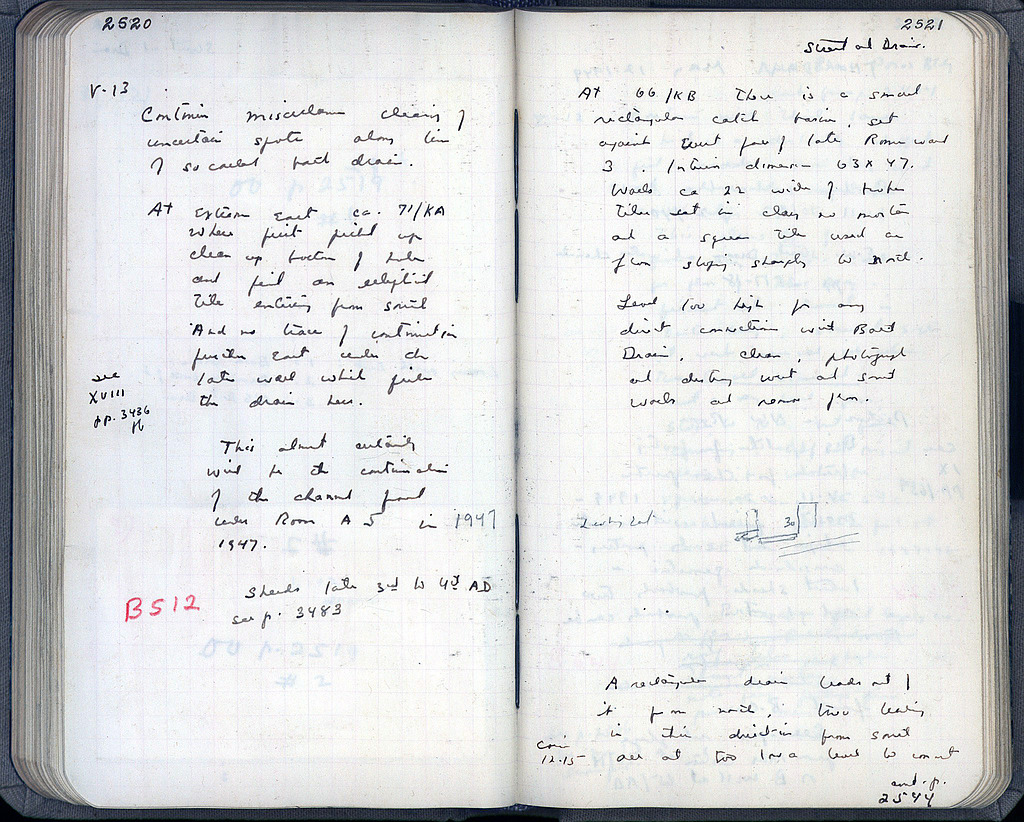 2520
V-13
Continue miscellaneous cleaning of
uncertain spots along line
of so called east drain.
At Extreme East ca. 71/KA
where first picked up
clean up bottom of hole
and find an elliptical
tile entering from south
And no trace of continuation
further East under the
later wall which
the drain here.
see
XVIII
pp. 3436
ff
This almost certainly
will be the continuation
of the channel found
under Room A 5 in 1947
1947.
B512
Sherds late 3rd to 4th AD
see p. 3483
2521
Street and Drain.
At 66/KB there is a small
rectangular catch basin, set
against West face of late Roman wall
3 Interior dimension 63 x 47.
Walls ca 22 wide of broken
tiles set in clay no mortar
and a square tile used as
floor sloping sharply to North.
Level too high for any
direct connection with East
Drain, clean, photograph
and destroy west and south
walls and remove floor.
Looking East
30
A rectangular drain leads out of
it from north, two leading
in this direction from south
Coin
12.15 are at too low a level to connect
cont. p.
2544